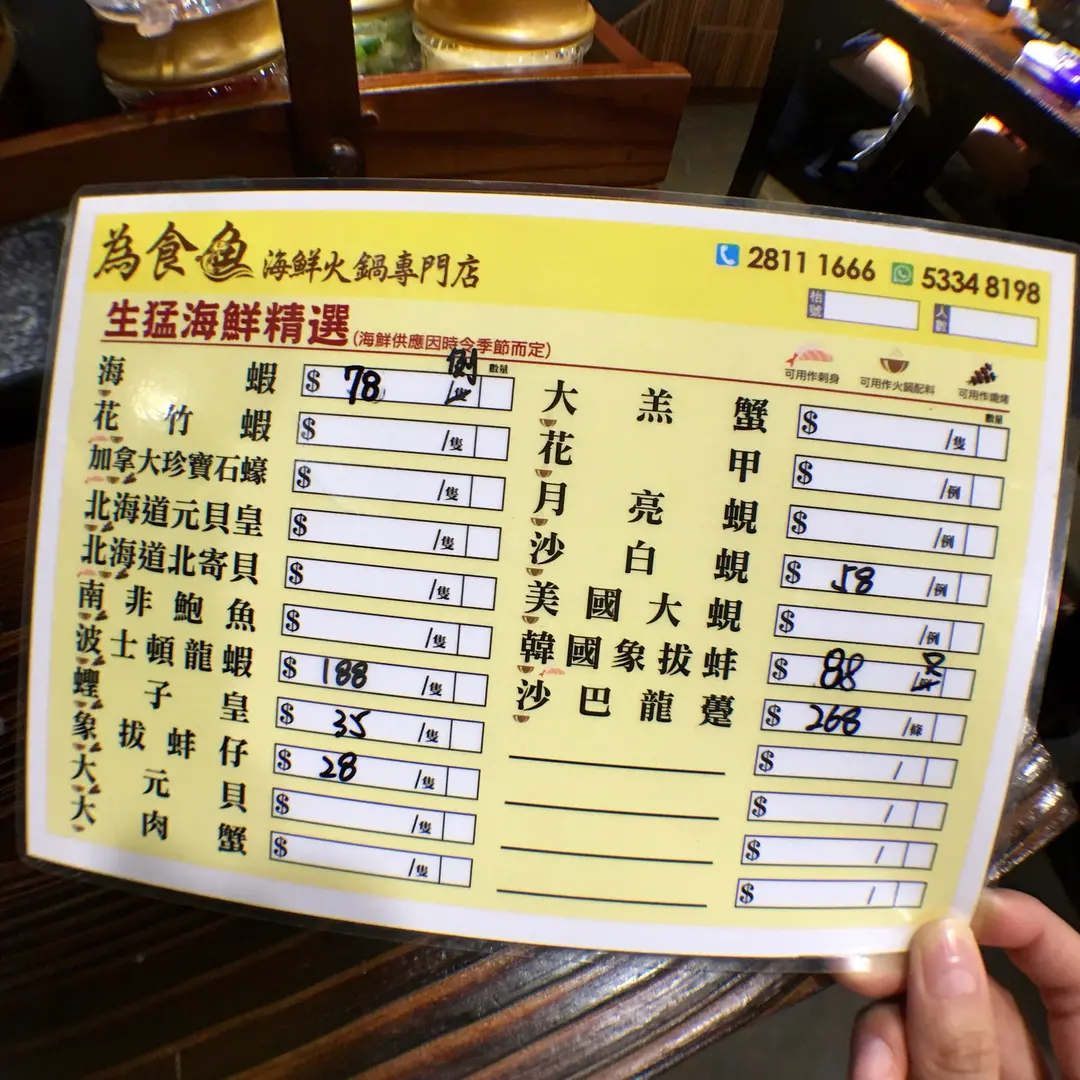 為食魚 海鮮火鍋專門店
2811 1666 5334 8198
枱號 人數
生猛海鮮精選 (海鮮供應因時令季節而定)
可用作刺身 可用作火鍋配料 可用作燒烤
數量
海蝦 $ 78 例
花竹蝦 $ /隻
加拿大珍寶石蠔 $ /隻
北海道元貝皇 $ /隻
北海道北寄貝 $ /隻
南非鮑魚 $ /隻
波士頓龍蝦 $ 188 /隻
蟶子皇 $ 35 /隻
象拔蚌仔 $ 28 /隻
大元貝 $ /隻
大肉蟹 $ /隻
數量
大羔蟹 $ /隻
花甲 $ /例
月亮蜆 $ /例
沙白蜆 $ 58 /例
美國大蜆 $ /例
韓國象拔蚌 $ 88
沙巴龍躉 $ 268 /條
$ /
$ /
$ /
$ /